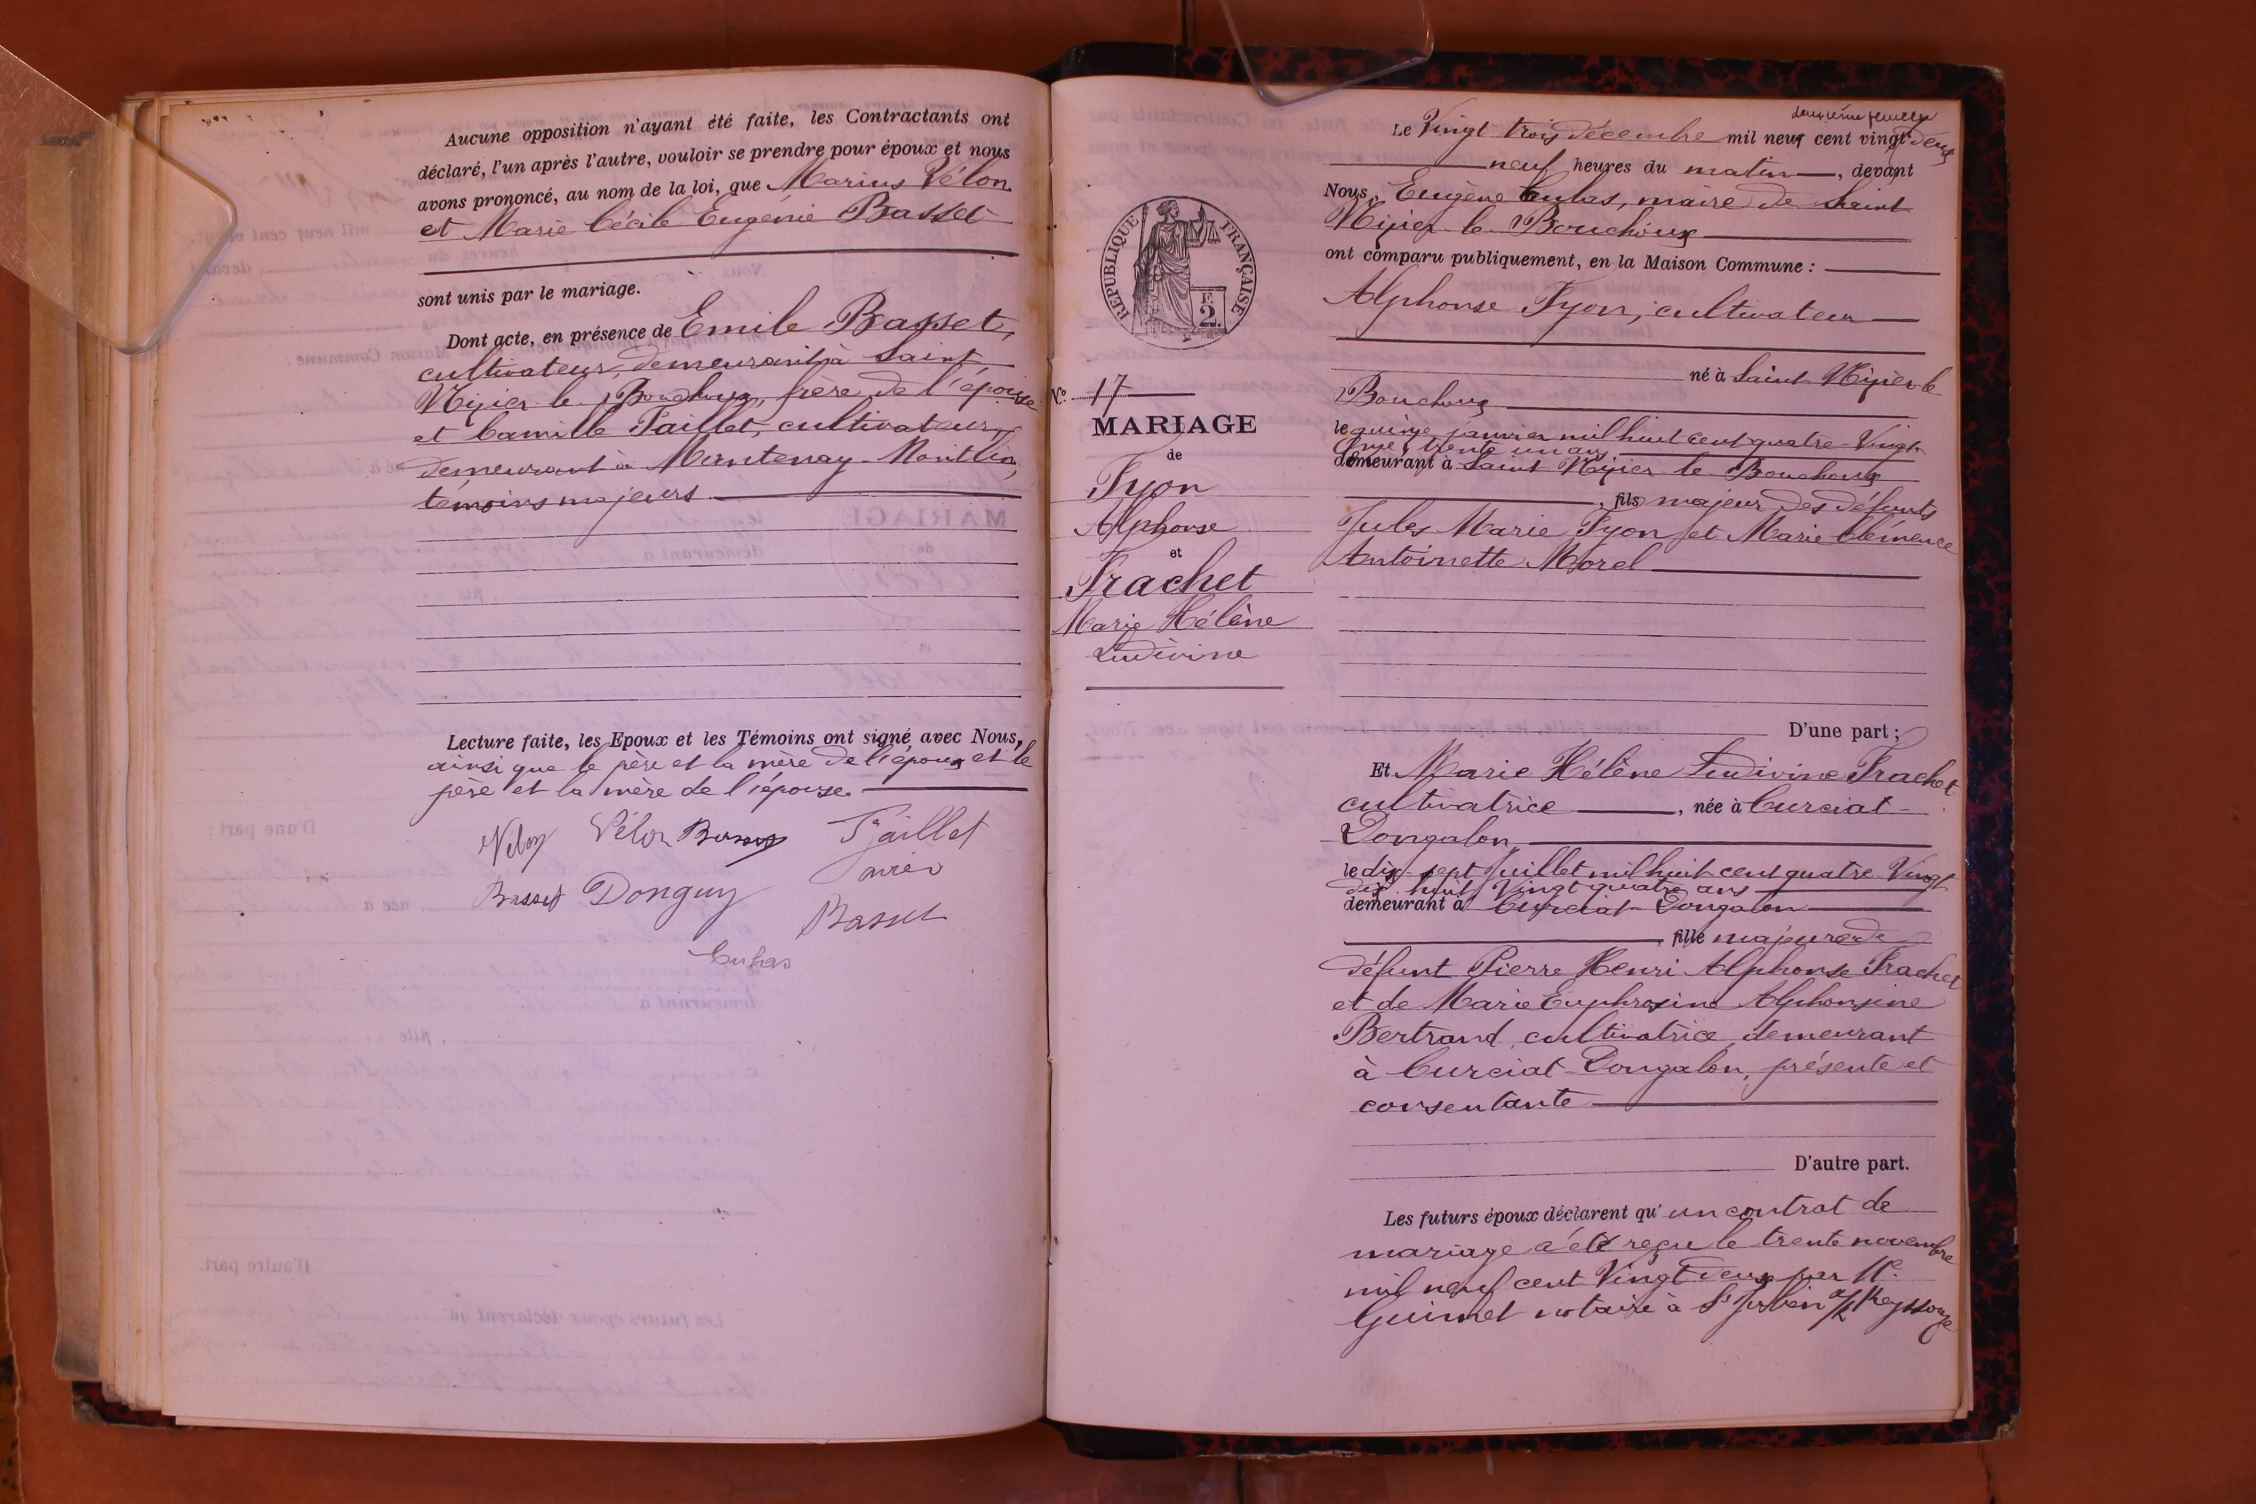 Aucune opposition n'ayant été faite, les Contractants ont
déclaré, l'un après l'autre, vouloir se prendre pour époux et nous
avons prononcé, au nom de la loi, que Marius Vélon
et Marie Cécile Eugénie Basset
sont unis par le mariage.
Dont acte, en présence de Emile Basset,
cultivateur, demeurant à Saint
Nizier le Bouchoux, frère de l'épouse
et Camille Taillet, cultivateur,
demeurant à Mantenay-Montlin,
témoins majeurs
Lecture faite, les Epoux et les Témoins ont signé avec Nous,
ainsi que le père et la mère de l'époux et le
père et la mère de l'épouse.
Velon Vélon Basset
Basset Donguy
Basset
Cubas
deuxième feuillet
Le Vingt trois décembre mil neuf cent vingt deux
neuf heures du matin, devant
Nous, Eugène Cubas, maire de Saint
Nizier le Bouchoux
ont comparu publiquement, en la Maison Commune :
Alphonse Tyon, cultivateur
né à Saint Nizier le
Bouchoux
le quinze janvier mil huit cent quatre-Vingt
onze, trente un ans
demeurant à Saint Nizier le Bouchoux
, fils majeur des défunts
Jules Marie Tyon et Marie Clémence
Antoinette Morel
D'une part ;
RÉPUBLIQUE FRANÇAISE
E
2.
No. 17
MARIAGE
de
Tyon
Alphonse
et
Trachet
Marie Hélène
Ludivine
Et Marie Hélène Ludivine Trachet
cultivatrice, née à Curciat-
Dongalon
le dix sept Juillet mil huit cent quatre Vingt
dix huit, Vingt quatre ans
demeurant à Curciat-Dongalon
, fille majeure de
défunt Pierre Henri Alphonse Trachet
et de Marie Euphrosine Alphonsine
Bertrand, cultivatrice, demeurant
à Curciat-Dongalon, présente et
consentante
D'autre part.
Les futurs époux déclarent qu'un contrat de
mariage a été reçu le trente novembre
mil neuf cent Vingt deux par Me.
Guimet notaire à St Julien s/ Reyssouze